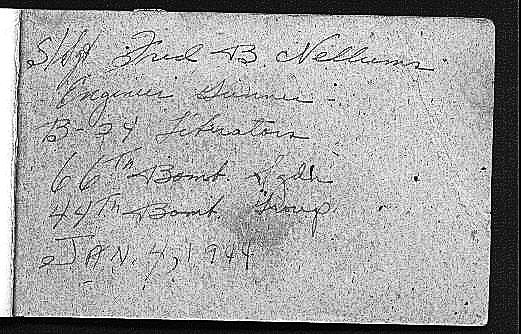 S/Sgt Fred B. Nelliums
Engineer Gunner -
B-24 Liberators
66TH Bomb. Sqdn
44TH Bomb. Group
JAN. 4, 1944